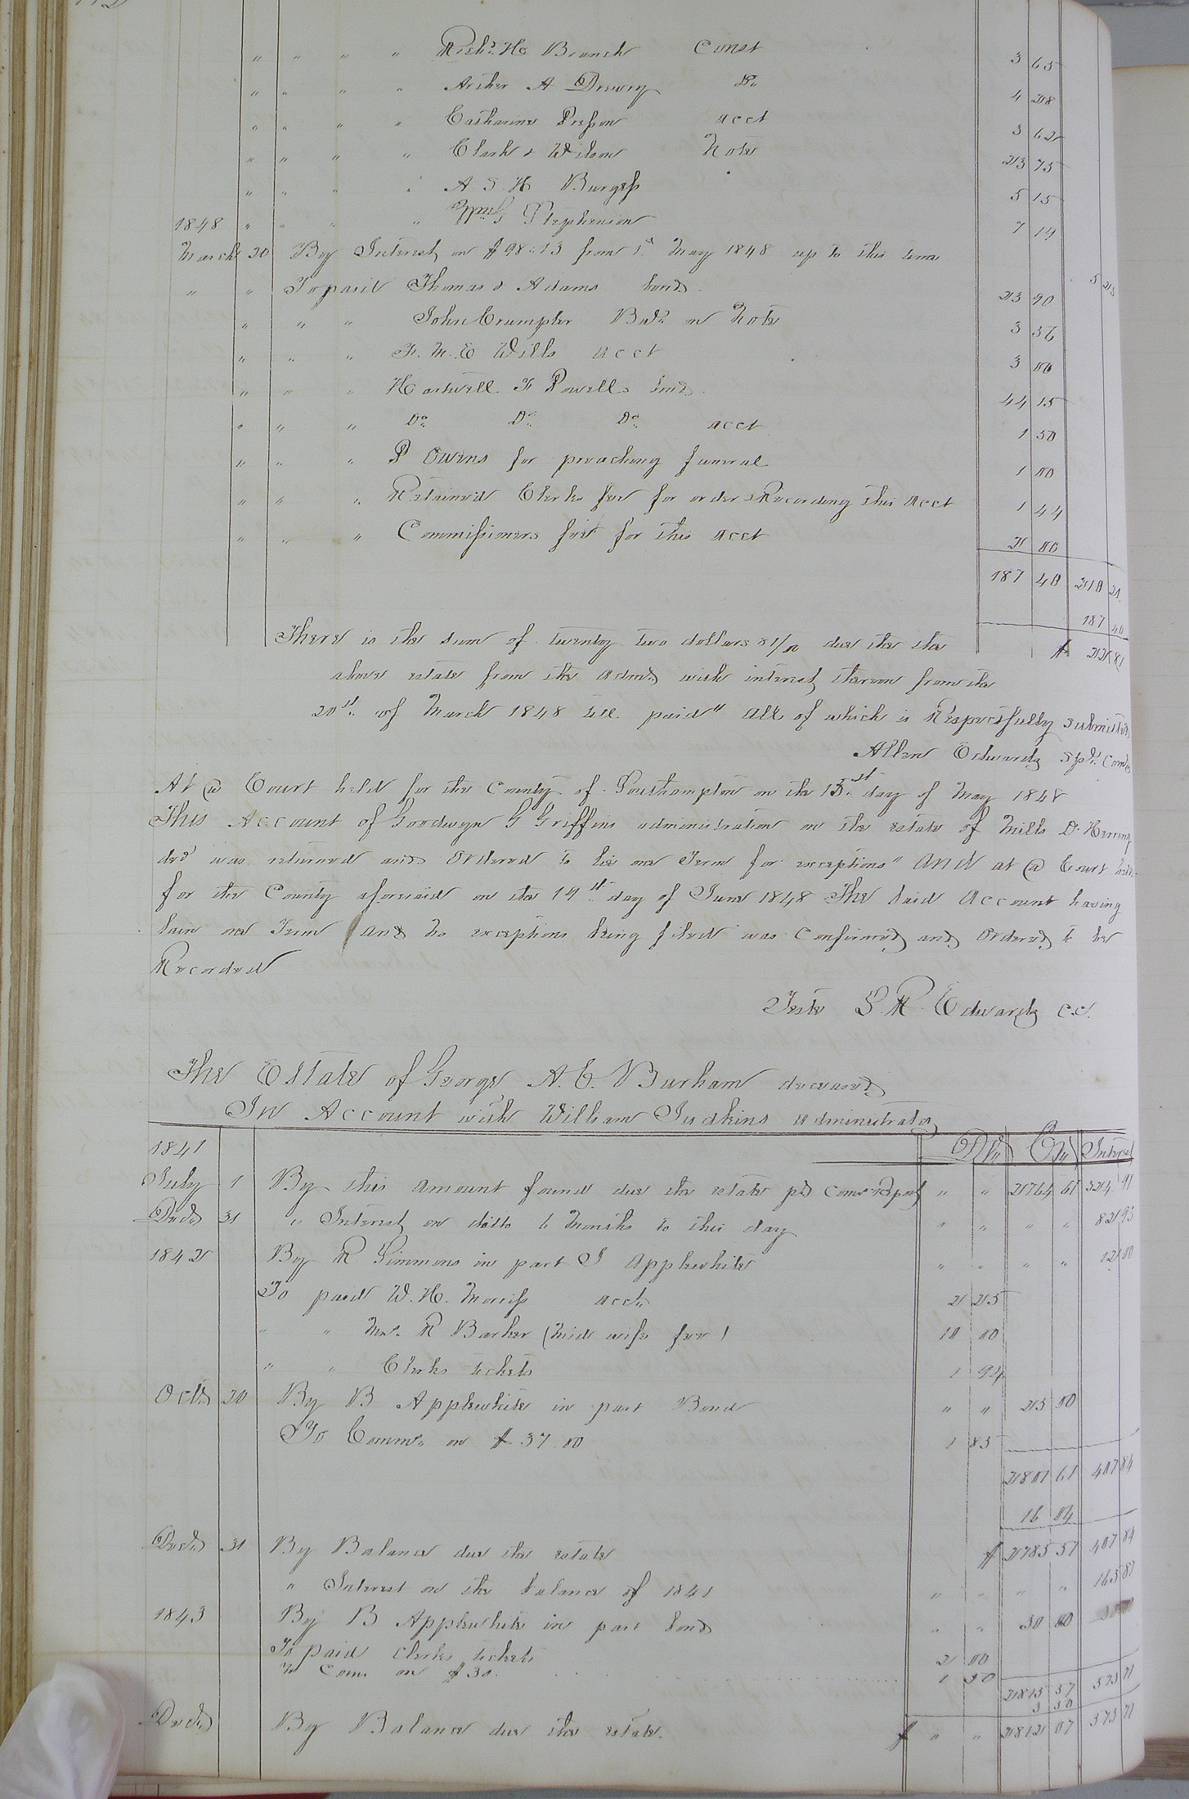 " " " " Richd. H. Branch Const 3 65
" " " " Archer A Drewry Do 4 28
" " " " Catharine Presson acct 3 62
" " " " Clark & Wilson Note 23 75
" " " " A S H Burgess 5 15
1848 " " " " Wm G Stephenson 7 14
March 20 By Interest on $98.13 from 1st May 1848 up to this time
" " To paid Thomas & Adams bond 23 90
" " " John Crumpler Bale. on Note 3 36
" " " acct 3 00
" " " Hartwell F Powells bond 44 15
" " " Do Do Do acct 1 50
" " " P Owens for preaching funeral 1 00
" " " Retained Clerks fee for order & Recording this Acct 1 44
" " " Commissioners fee for this acct 2 00
187 40 210 21
187 40
There is the sum of twenty two dollars 81/00 due the the $ 22 81
above estate from the admr. with interest thereon from the
20th. of March 1848 till paid" All of which is Respectfully submitted
Allen Edwards Spl. Comr
At a Court held for the County of Southampton on the 15th day of May 1848
This Account of Goodwyn G Griffins administration on the estate of Mills D. Herring
decd was returned and Ordered to lie one Term for exceptions" And at a Court held
for the County aforesaid on the 19th day of June 1848 The said Account having
lain one Term and no exceptions being filed was Confirmed and Ordered to be
Recorded
Teste L. R. Edwards C.C.
The Estate of George A. E. Burham deceased
In Account with William Judkins administrator
1841 Dr. Cr. Interest
July 1 By this amount found due the estate pd Comr Report " " 2764 61 324 91
Decr. 31 " Interest on ditto 6 Months to this day " " " " 82 93
1842 By R Simmons in part Applewhite " " " "
To paid W. H. Morriss acct. 2 25
" " Mrs. R Barker (Mid wife fee) 10 00
" " Clerks tickets 1 94
Octr. 20 By B Applewhite in part Bond " " 25 00
To Comms. on $37.00 1 85
2801 61 407 84
16 04
Decr. 31 By Balance due the estate $ 2785 57 407 84
" Interest on the balance of 1841 " " " " 165 87
1843 By B Applewhite in part bond " " 30 00
To paid Clerks tickets 2 00
To Com. on $30. 1 50
2815 57 573 71
3 50
Decr. By Balance due the estate. $ " " 2812 07 573 71